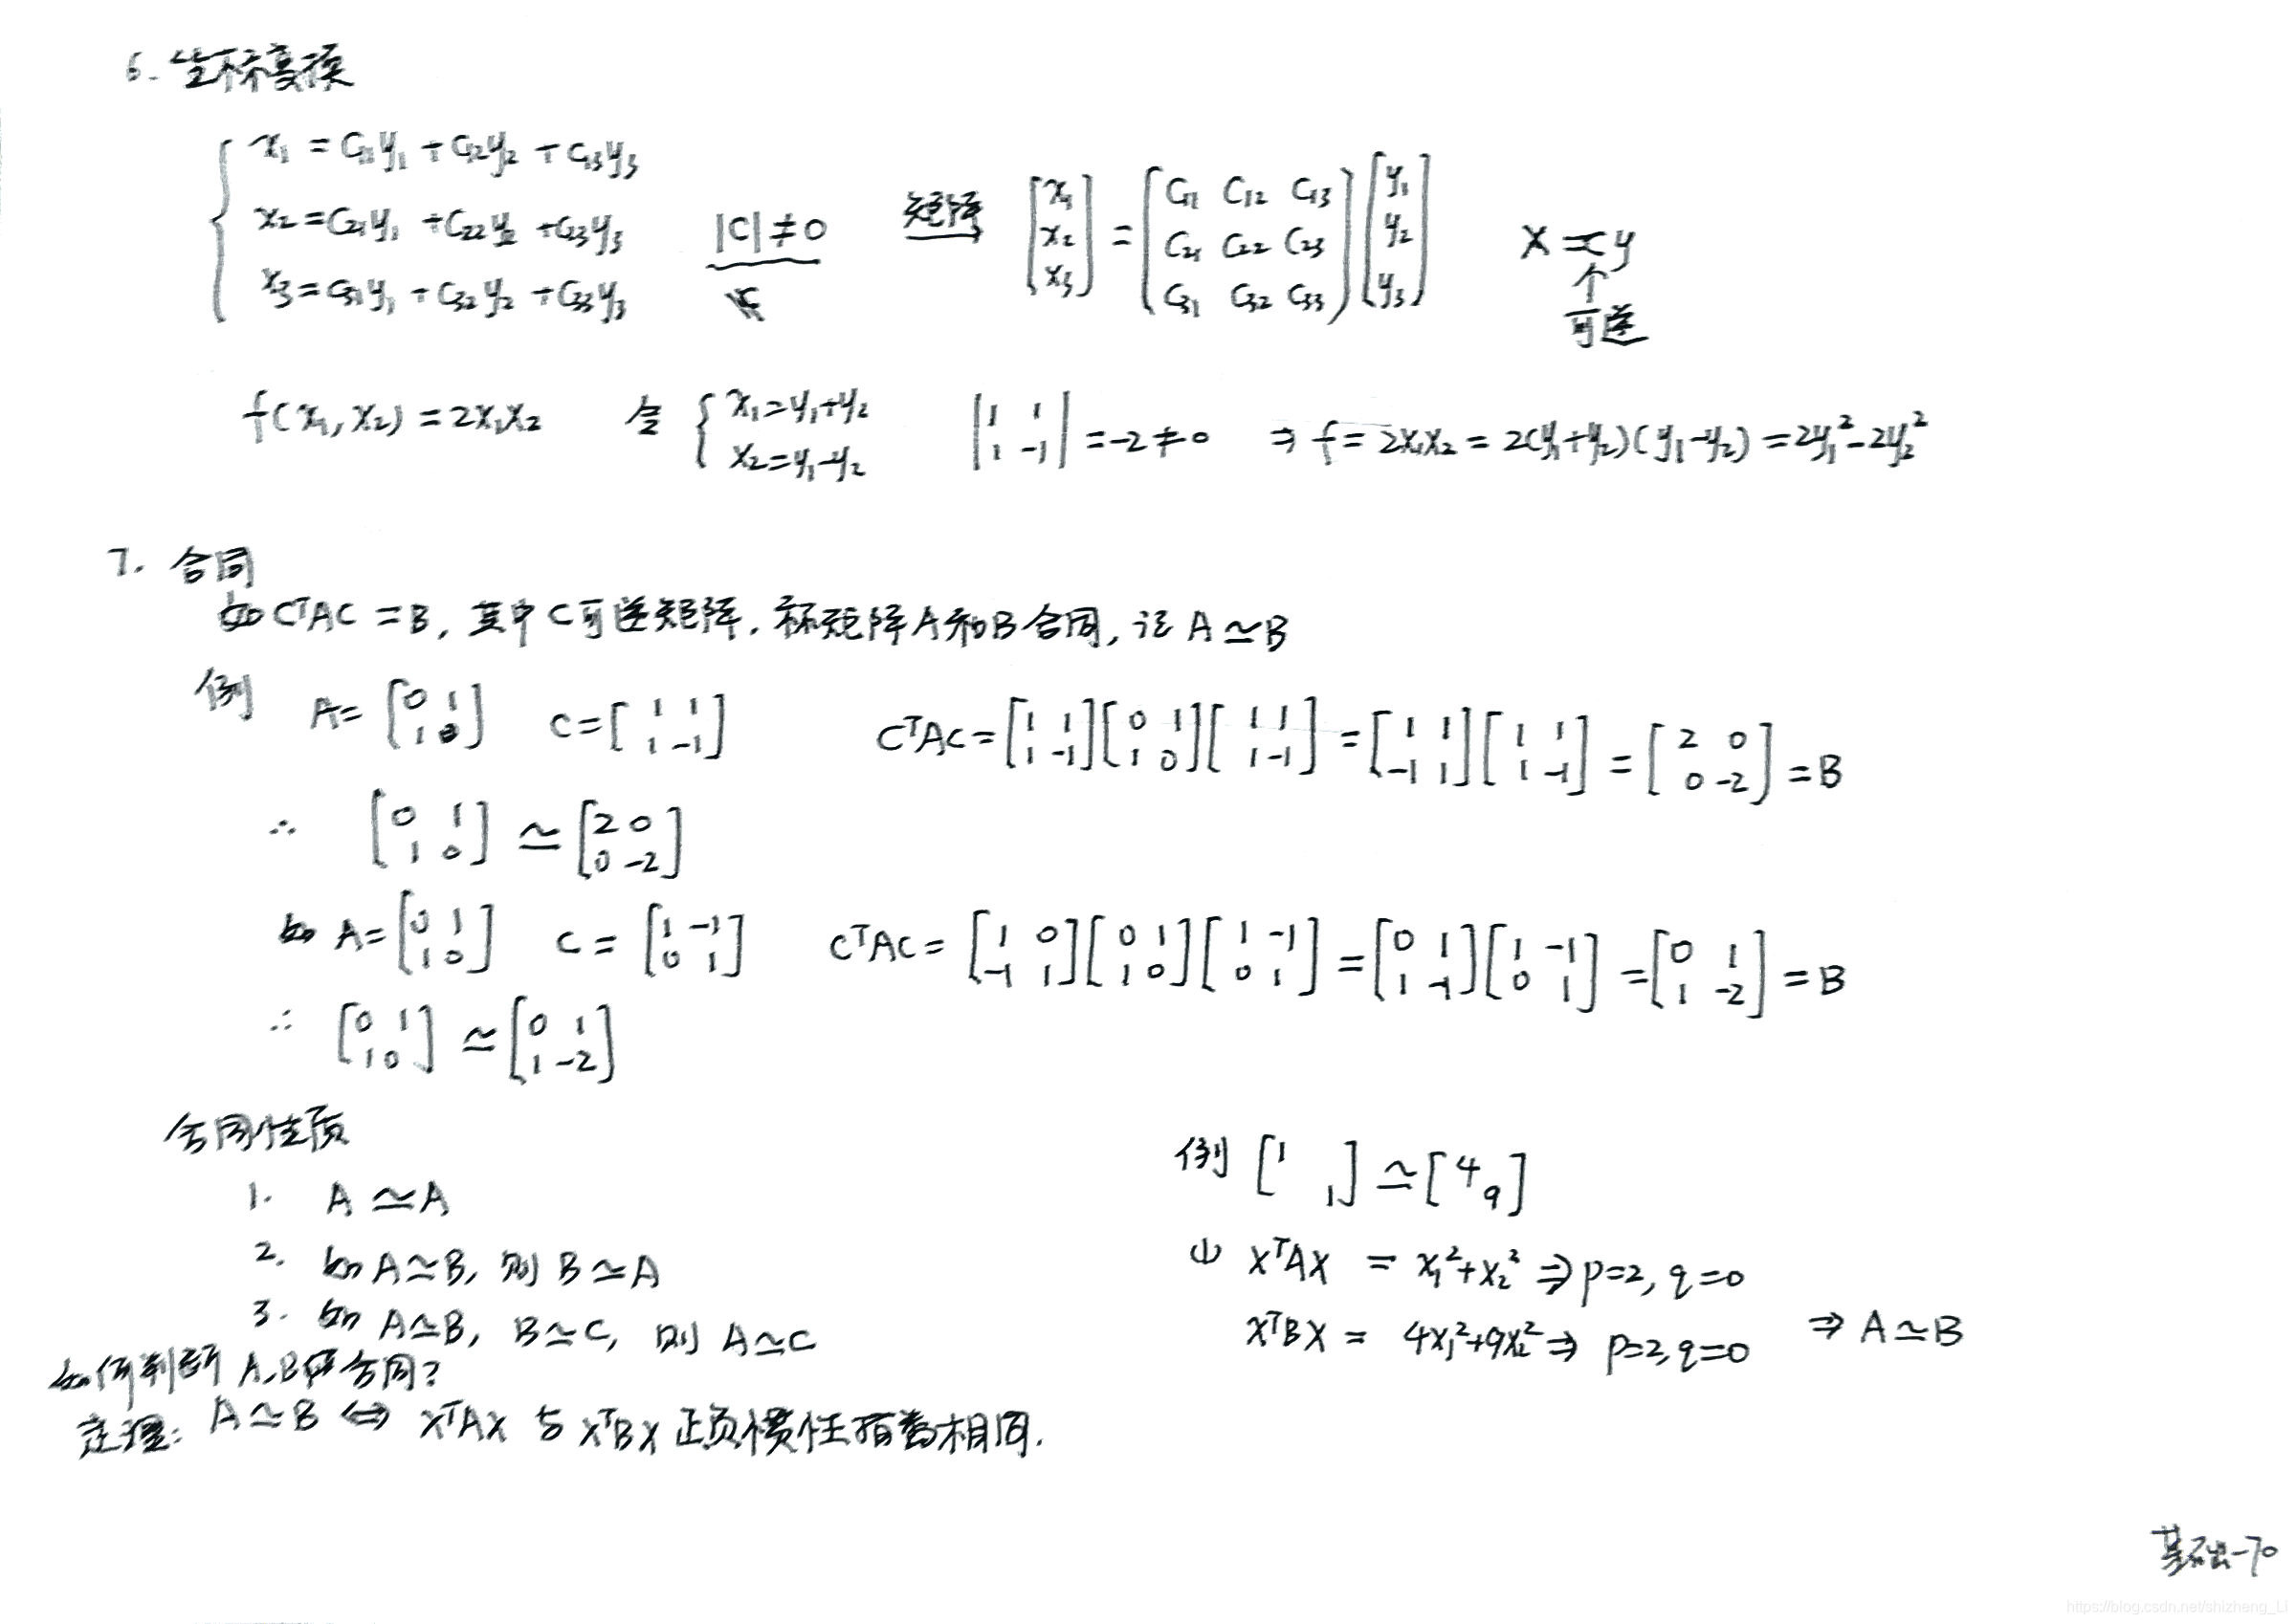 6. 坐标变换
x₁ = C₁₁y₁ + C₁₂y₂ + C₁₃y₃
x₂ = C₂₁y₁ + C₂₂y₂ + C₂₃y₃ |C| ≠ 0 矩阵→ [x₁; x₂; x₃] = [C₁₁ C₁₂ C₁₃; C₂₁ C₂₂ C₂₃; C₃₁ C₃₂ C₃₃] [y₁; y₂; y₃] X = Cy
x₃ = C₃₁y₁ + C₃₂y₂ + C₃₃y₃ ↑
可逆
f(x₁, x₂) = 2x₁x₂ 令 { x₁ = y₁+y₂; x₂ = y₁-y₂ |1 1; 1 -1| = -2 ≠ 0 ⇒ f = 2x₁x₂ = 2(y₁+y₂)(y₁-y₂) = 2y₁² - 2y₂²
7. 合同
如 CᵀAC = B, 其中 C 可逆矩阵, 称矩阵 A 和 B 合同, 记 A ≃ B
例 A = [0 1; 1 0] C = [1 1; 1 -1] CᵀAC = [1 1; 1 -1][0 1; 1 0][1 1; 1 -1] = [1 1; -1 1][1 1; 1 -1] = [2 0; 0 -2] = B
∴ [0 1; 1 0] ≃ [2 0; 0 -2]
如 A = [0 1; 1 0] C = [1 -1; 0 1] CᵀAC = [1 0; -1 1][0 1; 1 0][1 -1; 0 1] = [0 1; 1 -1][1 -1; 0 1] = [0 1; 1 -2] = B
∴ [0 1; 1 0] ≃ [0 1; 1 -2]
合同性质
1. A ≃ A
2. 如 A ≃ B, 则 B ≃ A
3. 如 A ≃ B, B ≃ C, 则 A ≃ C
如何判断 A, B 合同?
定理: A ≃ B ⇔ xᵀAx 与 xᵀBx 正负惯性指数相同.
例 [1 ; 1] ≃ [4 ; 9]
xᵀAx = x₁² + x₂² ⇒ p=2, q=0
xᵀBx = 4x₁² + 9x₂² ⇒ p=2, q=0 ⇒ A ≃ B
基础-70
https://blog.csdn.net/shizheng_Li